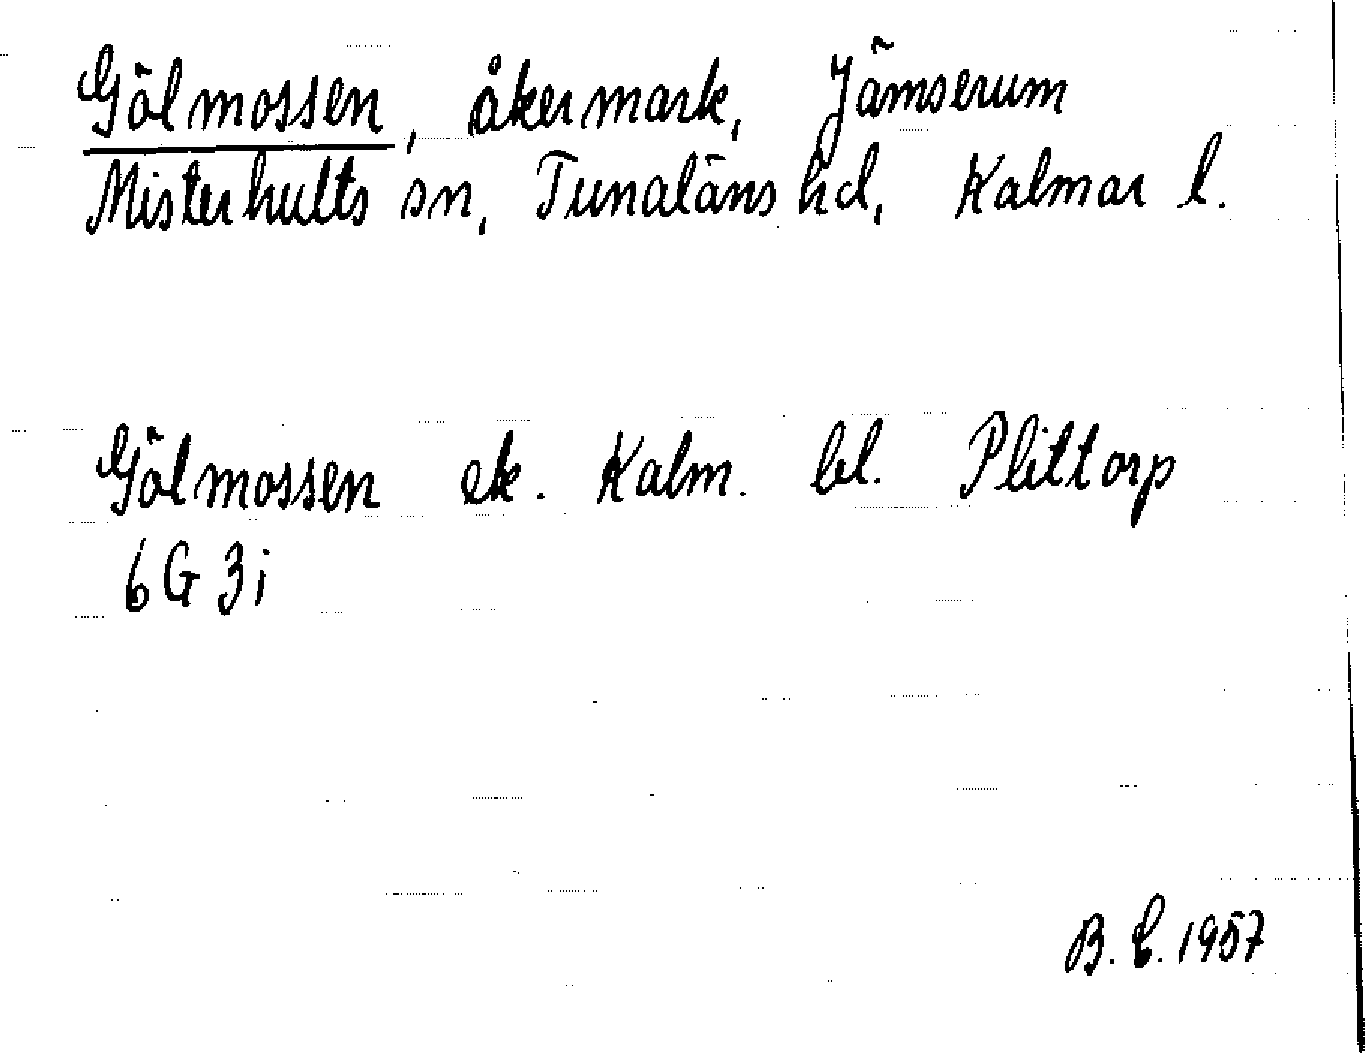 Gölmossen, åkermark, Jämserum
Misterhults sn, Tunaläns hd, Kalmar l.
Gölmossen ek. Kalm. bl. Plittorp
6G 3i
B. E. 1957